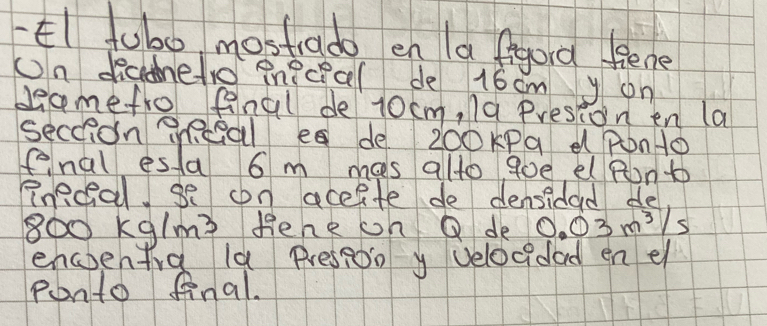 -El tubo mostrado en la figura tiene
Un diametro inicial de 16cm y un
diametro final de 10cm, la presión en la
sección inicial es de 200KPa el punto
final esta 6 m mas alto que el punto
inicial. si un aceite de densidad de
800 kg/m³ tiene un Q de 0.03 m³/s
encuentra la Presión y velocidad en el
punto final.